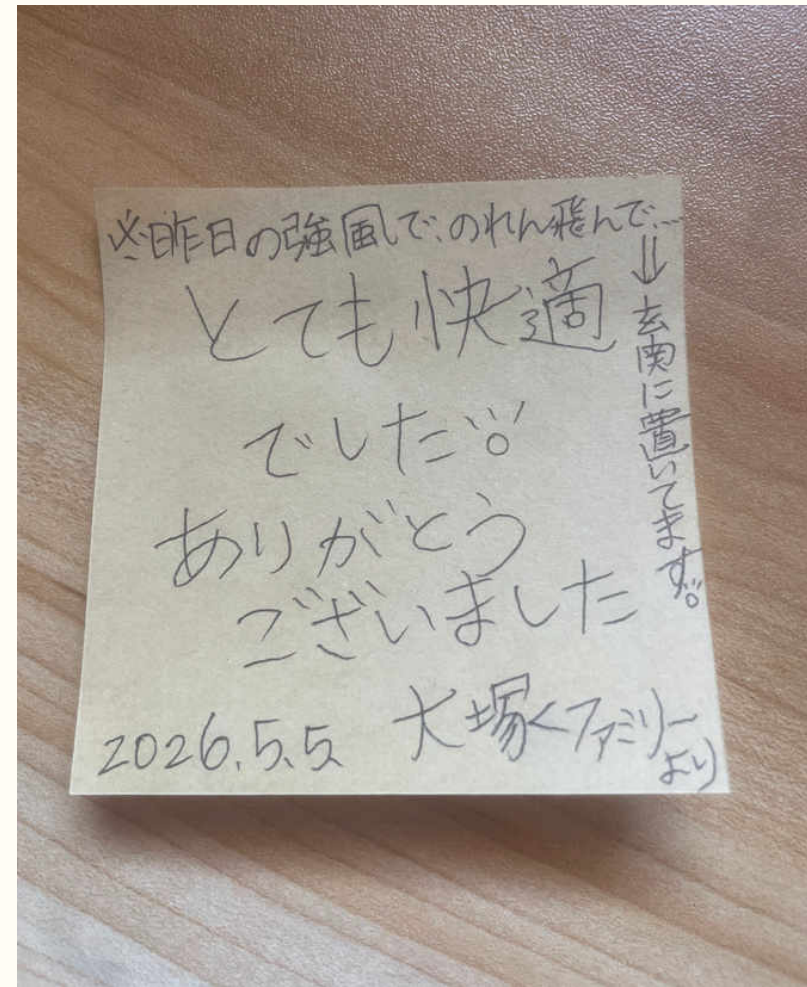 ※昨日の強風で、のれん飛んで…
⇓玄関に置いてます!!
とても快適
でした!!
ありがとう
ございました
2026.5.5. 大塚ファミリー
より